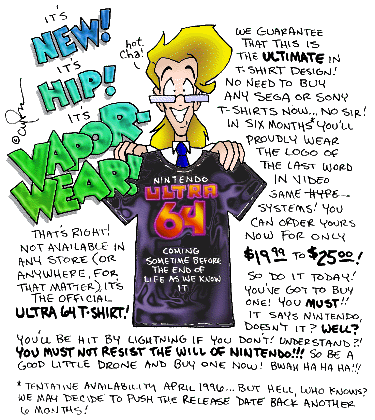 IT'S
NEW!
IT'S
HIP!
IT'S
VAPOR-
WEAR!
hot
cha!
WE GUARANTEE
THAT THIS IS
THE ULTIMATE IN
T-SHIRT DESIGN!
NO NEED TO BUY
ANY SEGA OR SONY
T-SHIRTS NOW... NO SIR!
IN SIX MONTHS* YOU'LL
PROUDLY WEAR
THE LOGO OF
THE LAST WORD
IN VIDEO
GAME HYPE--
SYSTEMS! YOU
CAN ORDER YOURS
NOW FOR ONLY
$19.99 TO $25.00!
SO DO IT TODAY!
YOU'VE GOT TO BUY
ONE! YOU MUST!!
IT SAYS NINTENDO,
DOESN'T IT? WELL?
NINTENDO
ULTRA
64
COMING
SOMETIME BEFORE
THE END OF
LIFE AS WE KNOW
IT
THAT'S RIGHT!
NOT AVAILABLE IN
ANY STORE (OR
ANYWHERE, FOR
THAT MATTER), IT'S
THE OFFICIAL
ULTRA 64 T-SHIRT!
YOU'LL BE HIT BY LIGHTNING IF YOU DON'T! UNDERSTAND?!
YOU MUST NOT RESIST THE WILL OF NINTENDO!!! SO BE A
GOOD LITTLE DRONE AND BUY ONE NOW! BWAH HA HA HA!!!
* TENTATIVE AVAILABILITY APRIL 1996... BUT HELL, WHO KNOWS?
WE MAY DECIDE TO PUSH THE RELEASE DATE BACK ANOTHER
6 MONTHS!